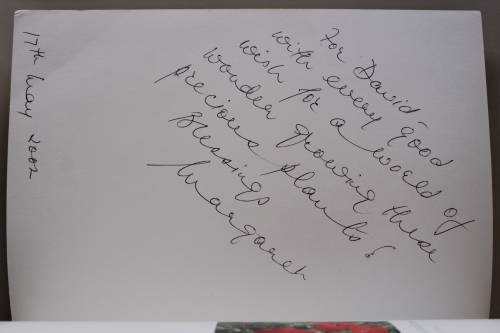 For David
with every good
wish for a world of
wonder growing these
precious plants &
Blessings
Margaret
17th May 2002